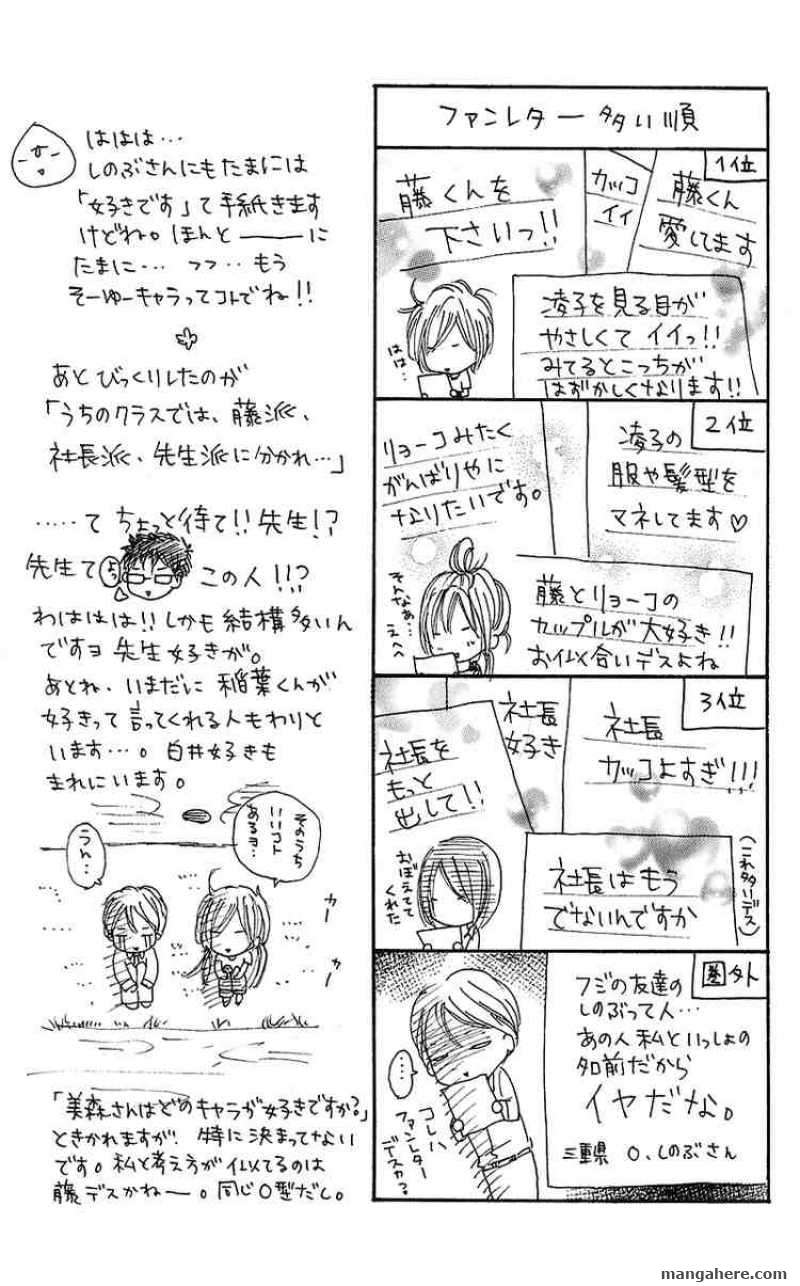 ファンレター多い順
1位
藤くん
愛してます
カッコ
イイ
藤くんを
下さいっ!!
凌子を見る目が
やさしくてイイっ!!
みてるとこっちが
はずかしくなります!!
はは…
2位
凌子の
服や髪型を
マネしてます♡
リョーコみたく
がんばりやに
なりたいです。
藤とリョーコの
カップルが大好き!!
お似合いデスよね
そんなぁ…
えへへ
3位
社長
カッコよすぎ!!!
社長
好き
社長を
もっと
出して!!
社長はもう
でないんですか
(これ多いデス)
おぼえてて
くれた
圏外
フジの友達の
しのぶって人…
あの人私といっしょの
名前だから
イヤだな。
三重県 O、しのぶさん
…
コレハ
ファンレター
デスカ?
ははは…
しのぶさんにもたまには
「好きです」て手紙きます
けどね。ほんと――――に
たまに…フフ‥もう
そーゆーキャラってコトでね!!
あとびっくりしたのが
「うちのクラスでは、藤派、
社長派、先生派に分かれ…」
……てちょっと待て!!先生!?
先生て よっ この人!!?
わははは!!しかも結構多いん
ですヨ先生好きが。
あとね、いまだに稲葉くんが
好きって言ってくれる人もわりと
います…。白井好きも
まれにいます。
そのうち
いいコト
あるヨ…
うん…
カー
カー
「美森さんはどのキャラが好きですか?」
ときかれますが、特に決まってない
です。私と考え方が似てるのは
藤デスかねー。同じO型だし。
mangahere.com